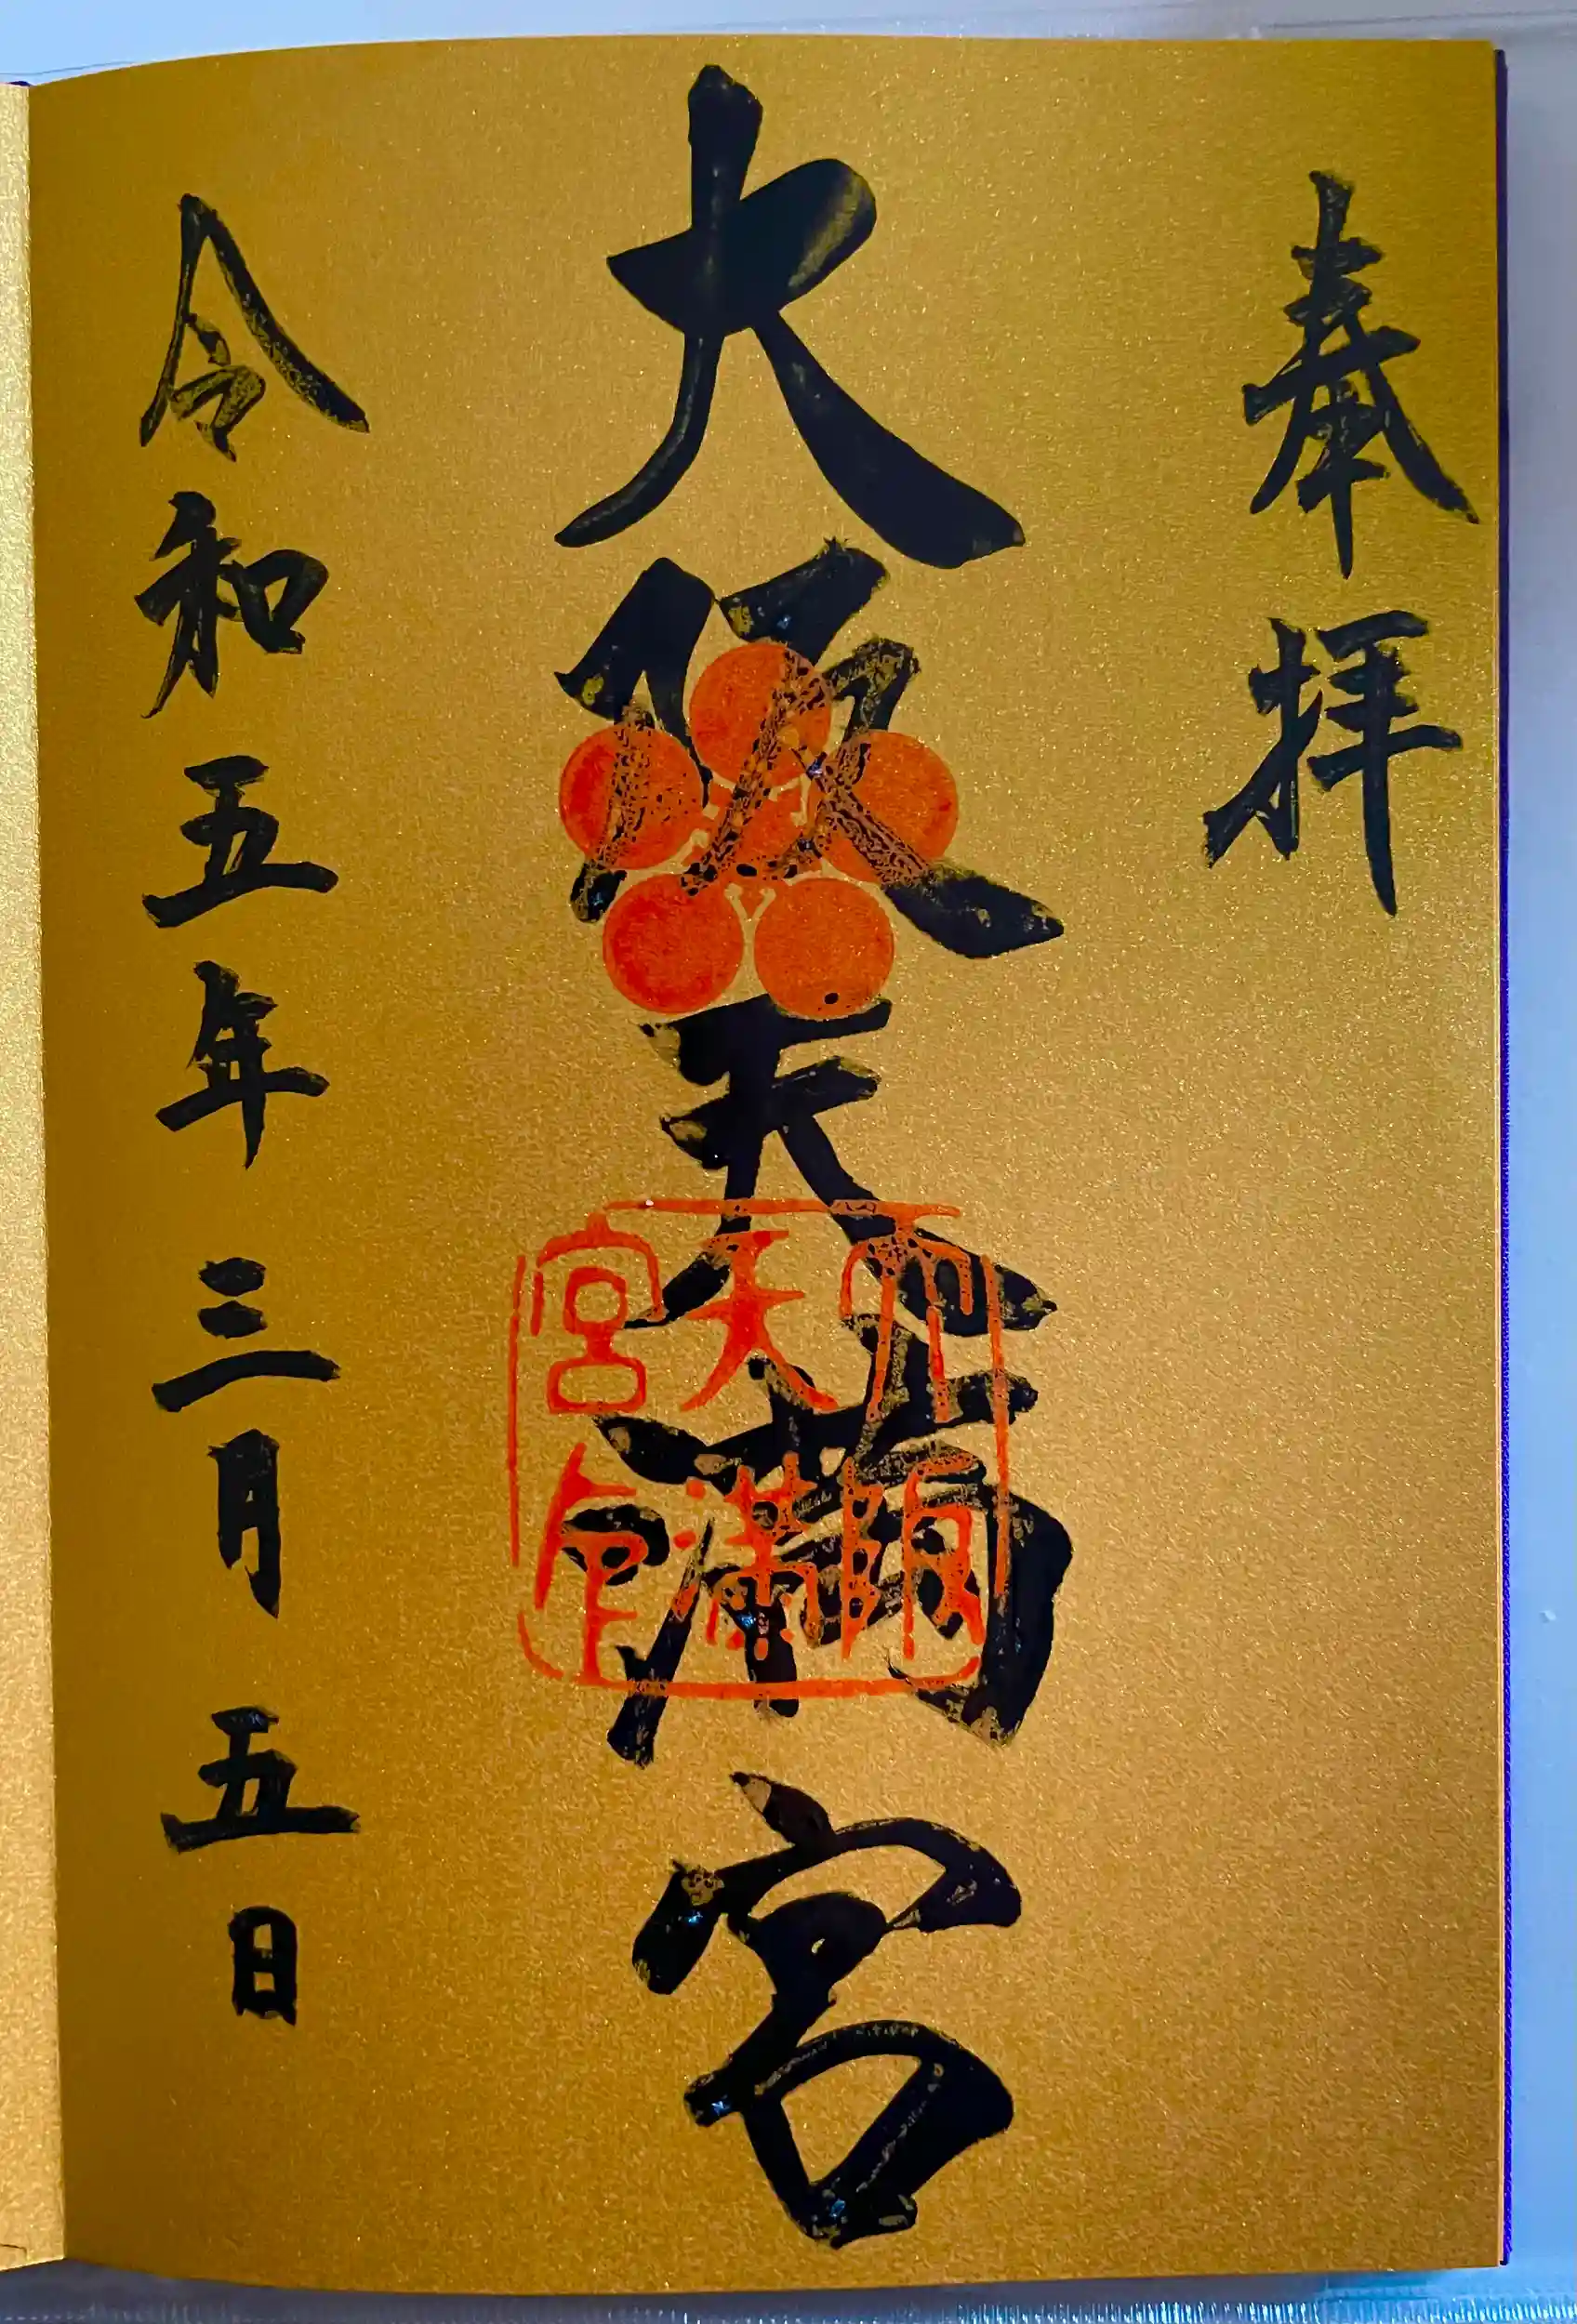 奉拝
大阪天満宮
大阪
天満
宮印
令和五年三月五日